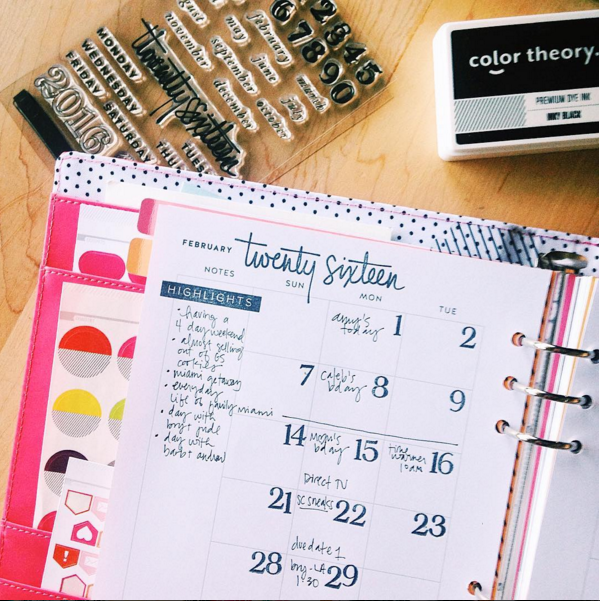 august
february
november
june
december
july
october
march
MONDAY
WEDNESDAY
FRIDAY
SATURDAY
2016
twenty sixteen
color theory.
PREMIUM DYE INK
INKY BLACK
FEBRUARY
twenty sixteen
NOTES
SUN
MON
TUE
HIGHLIGHTS
• having a
4 day weekend
• almost selling
out of GS
cookies
• miami getaway
• everyday
life & family miami
• day with
bry + jude
• day with
barb + andrew
1
2
7
caleb's
bday
8
9
14
bday
15
time
warner
10am
16
Direct TV
21
SC sneaks
22
23
due date 1
28
bry - LA
1:30
29